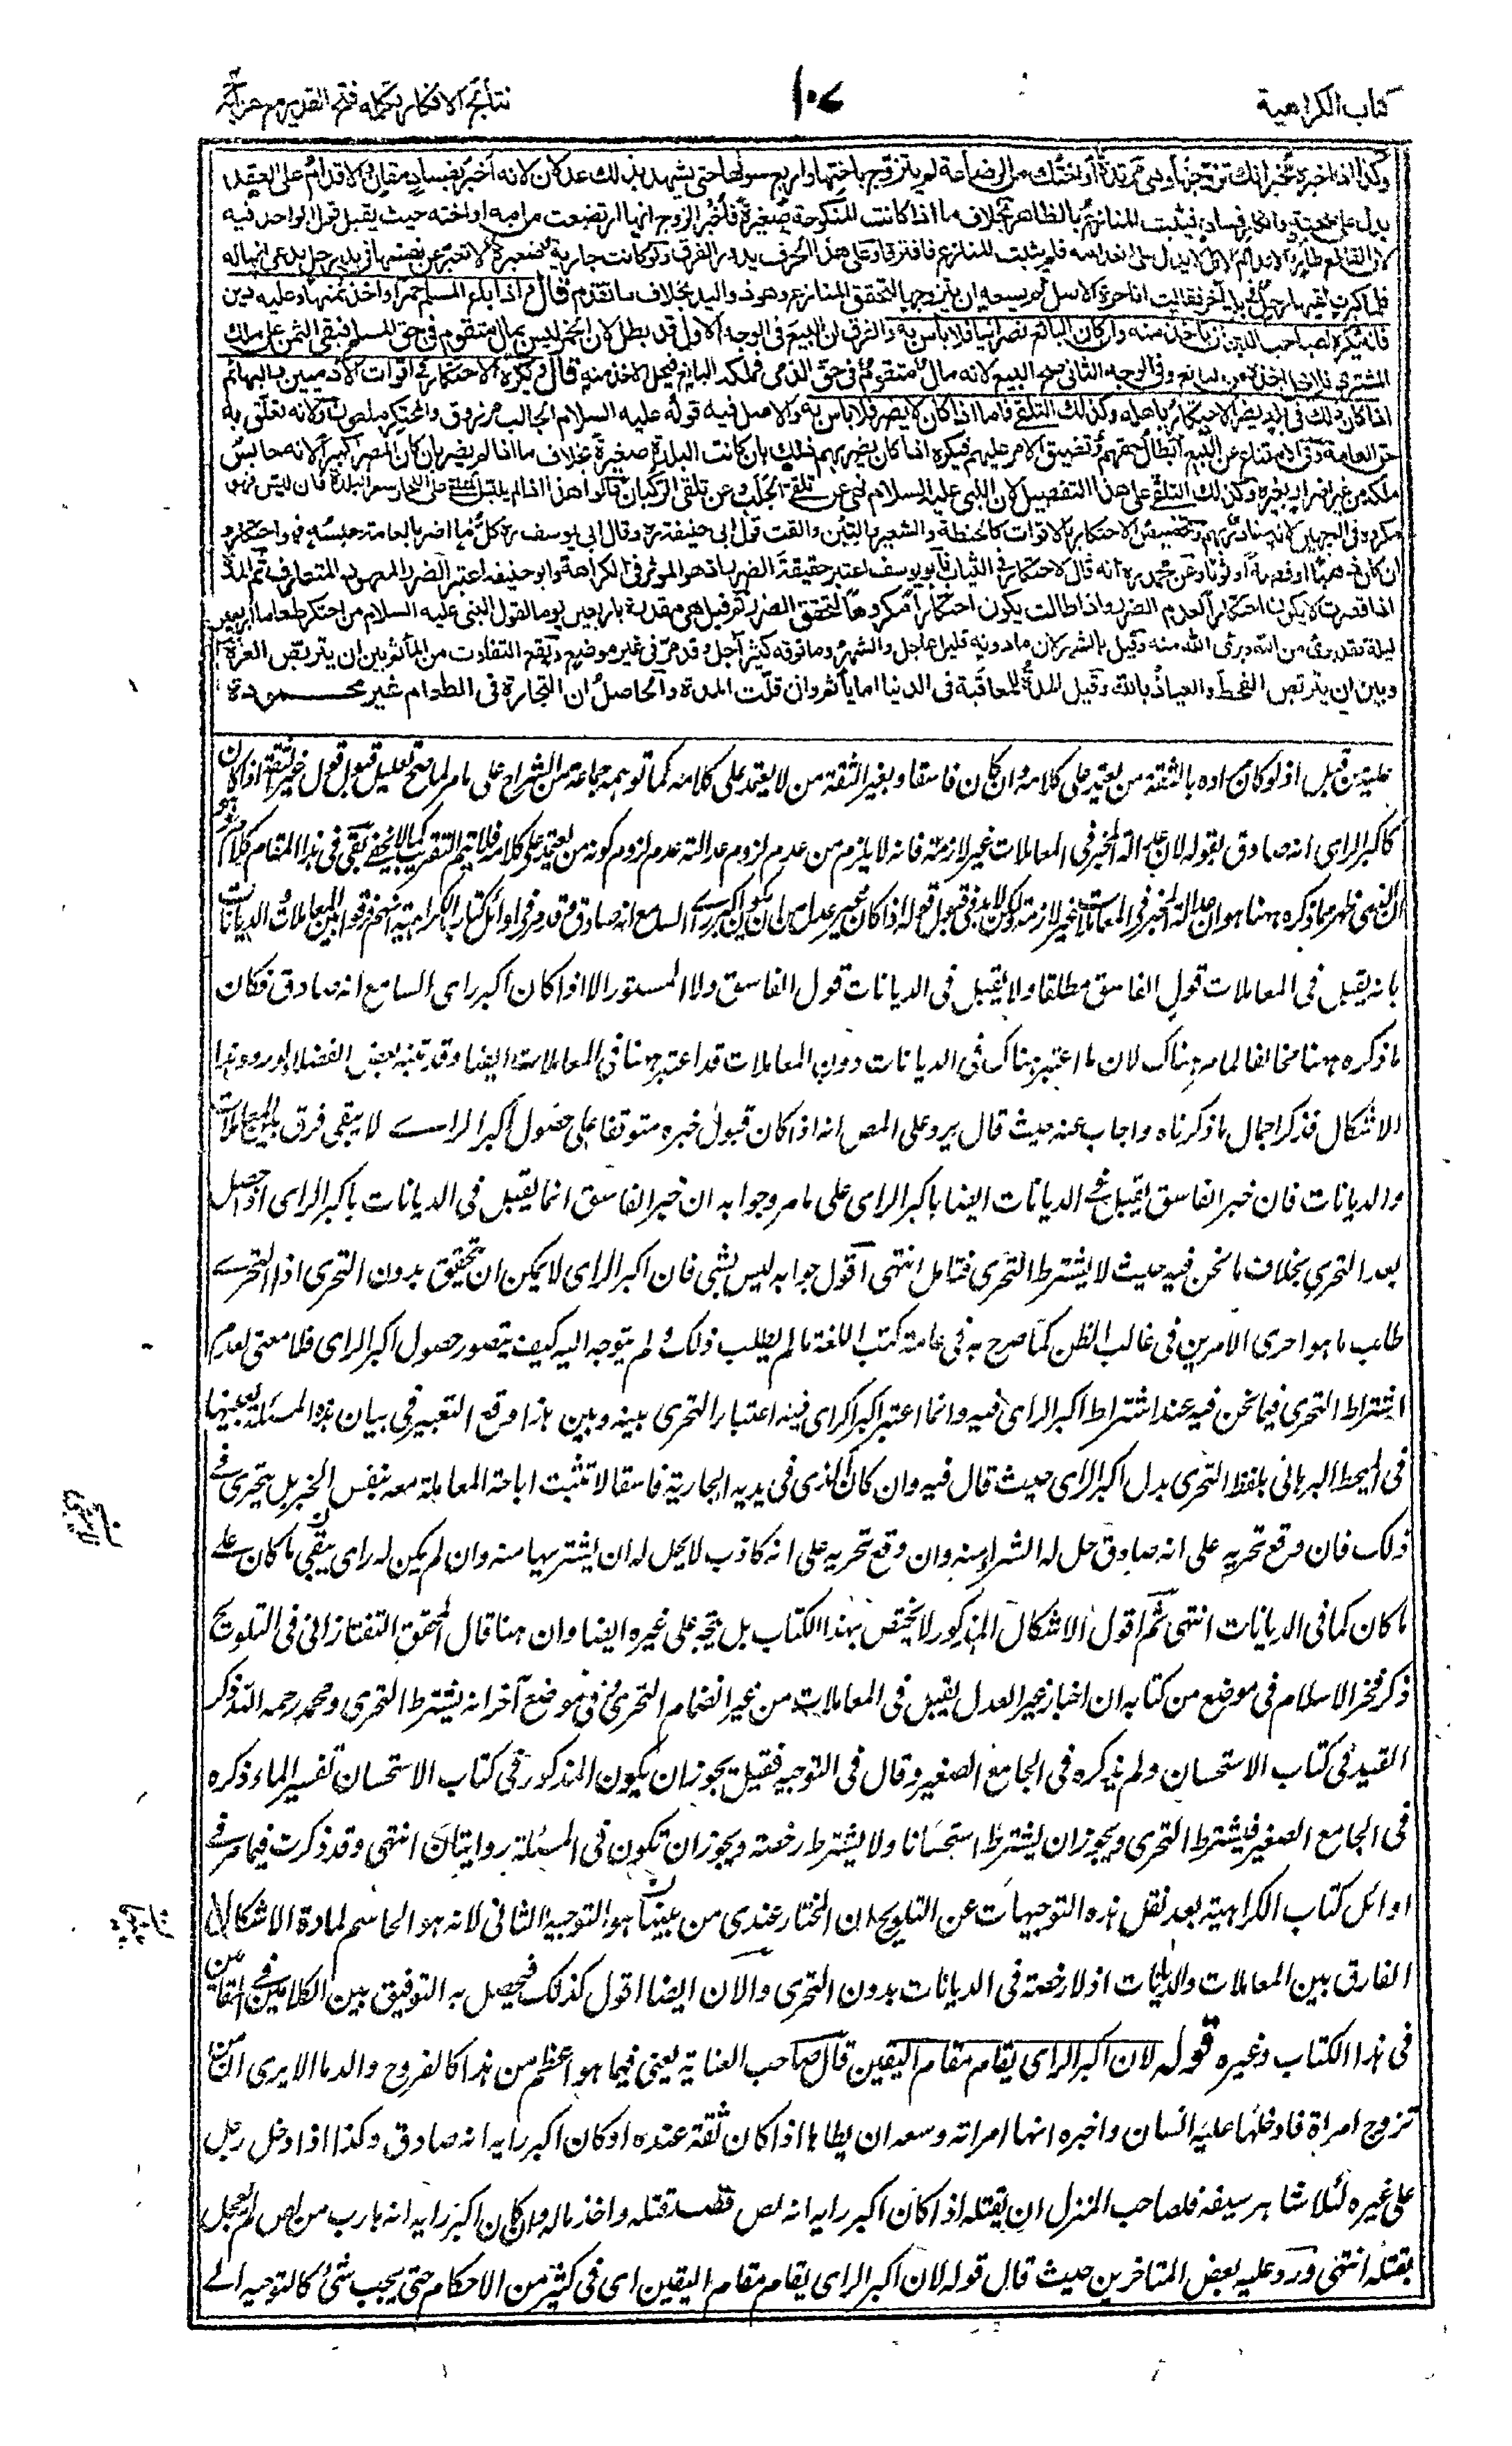 كتاب الكراهية
١٠٧
نتائج الافكار تكملة فتح القدير مع هداية
وكذا اذا اخبره مخبر انك تزوجتها وهي مرتدة أو اختك من الرضاعة لم يتزوج باختها واربع سواها حتى يشهد بذلك عدلان لانه أخبر بفساد مقارن والاقدام على العقد
يدل على صحته وانكار فساده فيثبت المنازع بالظاهر بخلاف ما اذا كانت المنكوحة صغيرة فأخبر الزوج انها ارتضعت من امه او اخته حيث يقبل قول الواحد فيه
لان القاطع طارئ والاقدام الاول لا يدل على انعدامه فلم يثبت المنازع فافترقا وعلى هذا الحرف يدور الفرق ولو كانت جارية صغيرة لا تعبر عن نفسها في يد رجل يدعي انها له
فلما كبرت لقيها رجل في بلد آخر فقالت انا حرة الاصل لم يسعه ان يتزوجها لتحقق المنازع وهو ذو اليد بخلاف ما تقدم قال واذا باع المسلم خمرا واخذ ثمنها وعليه دين
فانه يكره لصاحب الدين ان ياخذ منه وان كان البائع نصرانيا فلا بأس به والفرق ان البيع في الوجه الاول قد بطل لان الخمر ليس بمال متقوم في حق المسلم فبقي الثمن على ملك
المشتري فلا يحل اخذه من البائع وفي الوجه الثاني صح البيع لانه مال متقوم في حق الذمي فملكه البائع فيحل الاخذ منه قال ويكره الاحتكار في اقوات الآدميين والبهائم
اذا كان ذلك في بلد يضر الاحتكار باهله وكذلك التلقي فاما اذا كان لا يضر فلا باس به والاصل فيه قوله عليه السلام الجالب مرزوق والمحتكر ملعون ولانه تعلق به
حق العامة وفي الامتناع عن البيع ابطال حقهم وتضييق الامر عليهم فيكره اذا كان يضر بهم ذلك بان كانت البلدة صغيرة بخلاف ما اذا لم يضر بان كان المصر كبيرا لانه حابس
ملكه من غير اضرار بغيره وكذلك التلقي على هذا التفصيل لان النبي عليه السلام نهى عن تلقي الجلب وعن تلقي الركبان قالوا هذا اذا لم يلبس المتلقي على التجار سعر البلدة فان لبس فهو
مكروه في الوجهين لانه غادر بهم وتخصيص الاحتكار بالاقوات كالحنطة والشعير والتبن والقت قول ابي حنيفة ره وقال ابي يوسف ره كل ما اضر بالعامة حبسه فهو احتكار و
ان كان ذهبا او فضة أو ثوبا وعن محمد ره انه قال لا احتكار في الثياب فأبو يوسف اعتبر حقيقة الضرر اذ هو الموثر في الكراهة وابو حنيفة اعتبر الضرر المعهود المتعارف ثم المدة
اذا قصرت لا يكون احتكارا لعدم الضرر واذا طالت يكون احتكارا مكروها لتحقق الضرر ثم قيل هي مقدرة باربعين يوما لقول النبي عليه السلام من احتكر طعاما اربعين
ليلة فقد برئ من الله وبرئ الله منه وقيل بالشهر لان ما دونه قليل عاجل والشهر وما فوقه كثير آجل وقد مر في غير موضع ويقع التفاوت من المأثم بين ان يتربص العزة
وبين ان يتربص القحط والعياذ بالله وقيل المدة للمعاقبة في الدنيا اما يأثم وان قلت المدة والحاصل ان التجارة في الطعام غير محمودة
عليه من قبل اذ لو كان مراده بالثقة من يعتمد على كلامه وان كان فاسقا وبغير الثقة من لا يعتمد على كلامه كما توهمه جماعة من الشراح على ما مر لما صح تعليل قبول قول غير الثقة اذا كان
اكبر الراي انه صادق بقوله لان عدالة المخبر في المعاملات غير لازمة فانه لا يلزم من عدم لزوم عدالته عدم لزوم كونه ممن يعتمد على كلامه فلا يتم التقريب كما لا يخفى بقي في هذا المقام كلام وهو
ان الذي ظهر مما ذكره ههنا هو ان عدالة المخبر في المعاملات غير لازمة ولكن لابد في قبول قوله اذا كان غير عدل من ان يكون اكبر راي السامع انه صادق وقد مر في اوائل كتاب الكراهية انهم فرقوا بين المعاملات والديانات
بانه يقبل في المعاملات قول الفاسق مطلقا ولا يقبل في الديانات قول الفاسق ولا المستور الا اذا كان اكبر راي السامع انه صادق فكان
ما ذكره ههنا مخالفا لما مر هناك لان ما اعتبر هناك في الديانات دون المعاملات قد اعتبر ههنا في المعاملات ايضا وقد تنبه بعض الفضلاء لورود هذا
الاشكال فذكر اجمال ما ذكرناه واجاب عنه حيث قال يرد على المص انه اذا كان قبول خبره متوقفا على حصول اكبر الراي لا يبقى فرق بين المعاملات
والديانات فان خبر الفاسق يقبل في الديانات ايضا باكبر الراي على ما مر وجوابه ان خبر الفاسق انما يقبل في الديانات باكبر الراي اذا حصل
بعد التحري بخلاف ما نحن فيه حيث لا يشترط التحري فتامل انتهى اقول جوابه ليس بشئ فان اكبر الراي لا يمكن ان يتحقق بدون التحري اذ التحري
طلب ما هو احرى الامرين في غالب الظن كما صرح به في عامة كتب اللغة فما لم يطلب ذلك ولم يتوجه اليه كيف يتصور حصول اكبر الراي فلا معنى لعدم
اشتراط التحري فيما نحن فيه عند اشتراط اكبر الراي فيه وانما اعتبر اكبر الراي فيه اعتبار التحري بينه وبين هذا وقع التعبير في بيان هذه المسئلة بعينها
في المحيط البرهاني بلفظ التحري بدل اكبر الراي حيث قال فيه وان كان الذي في يديه الجارية فاسقا لا تثبت اباحة المعاملة معه بنفس الخبر بل يتحرى في
ذلك فان وقع تحريه على انه صادق حل له الشراء منه وان وقع تحريه على انه كاذب لا يحل له ان يشتريها منه وان لم يكن له راي يبقى ما كان على
ما كان كما في الديانات انتهى ثم اقول الاشكال المذكور لا يختص بهذا الكتاب بل يتجه على غيره ايضا وان هنا قال المحقق التفتازاني في التلويح
ذكر فخر الاسلام في موضع من كتابه ان اخبار غير العدل يقبل في المعاملات من غير انضمام التحري وفي موضع آخر انه يشترط التحري ومحمد رحمه الله ذكر
القيد في كتاب الاستحسان ولم يذكره في الجامع الصغير وقال في التوجيه فقيل يجوز ان يكون المذكور في كتاب الاستحسان تفسيرا لما ذكره
في الجامع الصغير فيشترط التحري ويجوز ان يشترط استحسانا ولا يشترط رخصة ويجوز ان تكون في المسئلة روايتان انتهى وقد ذكرت فيما مر في
اوائل كتاب الكراهية بعد نقل هذه التوجيهات عن التلويح ان المختار عندي من بينها هو التوجيه الثاني لانه هو الحاسم لمادة الاشكال
الفارق بين المعاملات والديانات اذ لا رخصة في الديانات بدون التحري والآن ايضا اقول كذلك فيحصل به التوفيق بين الكلامين في المقامين
في هذا الكتاب وغيره قوله لان اكبر الراي يقام مقام اليقين قال صاحب العناية يعني فيما هو اعظم من هذا كالفروج والدماء الا يرى ان من
تزوج امراة فادخلها عليه انسان واخبره انها امراته وسعه ان يطاها اذا كان ثقة عنده او كان اكبر رايه انه صادق وكذا اذا دخل رجل
على غيره ليلا شاهرا سيفه فلصاحب المنزل ان يقتله اذا كان اكبر رايه انه لص قصد قتله واخذ ماله وان كان اكبر رايه انه هارب من لص لم يعجل
بقتله انتهى ورد عليه بعض المتاخرين حيث قال قوله لان اكبر الراي يقام مقام اليقين اي في كثير من الاحكام حتى يجب شئ كالتوجه الى